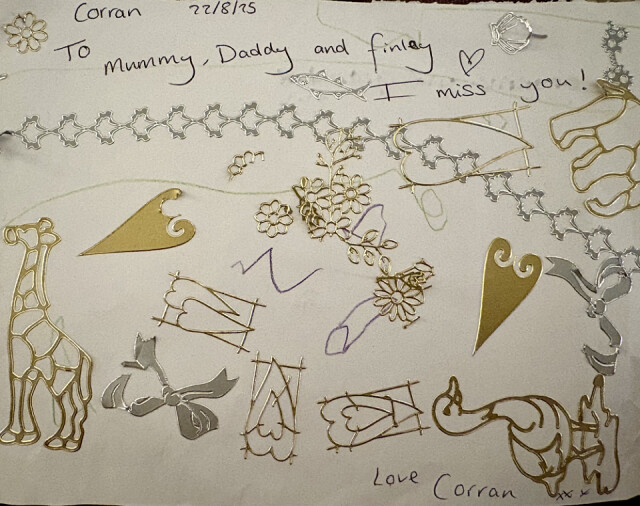 Corran 22/8/25
To Mummy, Daddy and finley
I miss you!
Love Corran
xxx